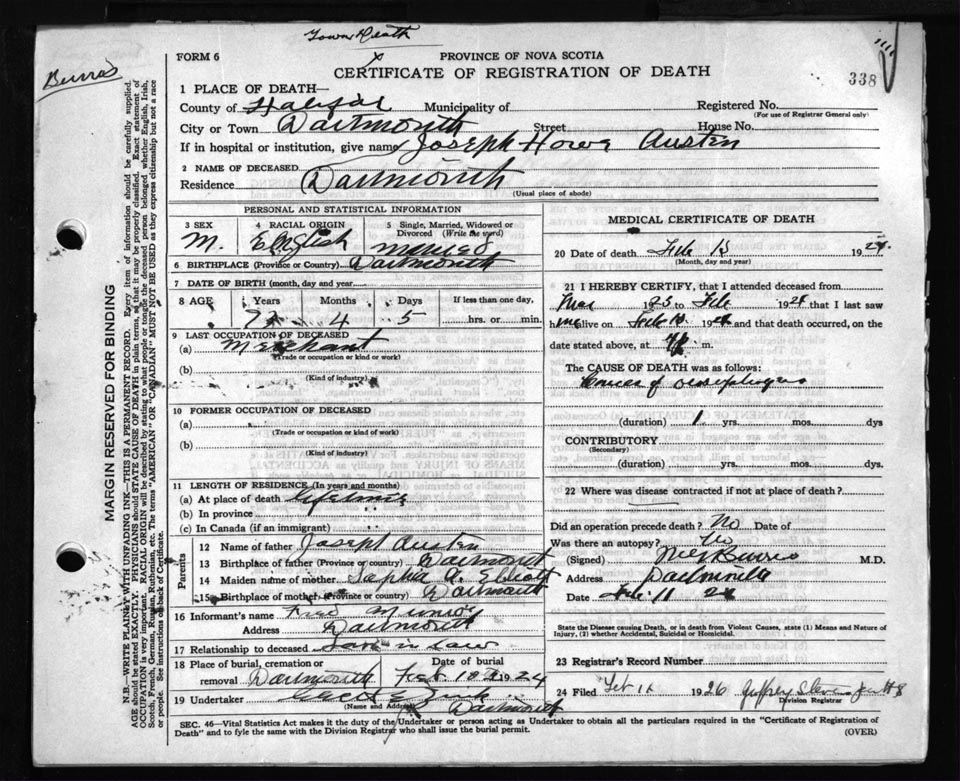 Town Death
Burris
FORM 6
PROVINCE OF NOVA SCOTIA
CERTIFICATE OF REGISTRATION OF DEATH
338
1 PLACE OF DEATH—
County of Halifax Municipality of
Registered No.
(For use of Registrar General only)
City or Town Dartmouth Street House No.
If in hospital or institution, give name Joseph Howe Austen
2 NAME OF DECEASED
Residence Dartmouth
(Usual place of abode)
PERSONAL AND STATISTICAL INFORMATION
3 SEX M. 4 RACIAL ORIGIN English 5 Single, Married, Widowed or Divorced (Write the word) Married
6 BIRTHPLACE (Province or Country) Dartmouth
7 DATE OF BIRTH (month, day and year)
8 AGE Years Months Days If less than one day,
4 5 hrs. or min.
9 LAST OCCUPATION OF DECEASED
(a) Merchant
(Trade or occupation or kind of work)
(b)
(Kind of industry)
10 FORMER OCCUPATION OF DECEASED
(a)
(Trade or occupation or kind of work)
(b)
(Kind of industry)
11 LENGTH OF RESIDENCE (In years and months)
(a) At place of death Lifetime
(b) In province "
(c) In Canada (if an immigrant) "
Parents
12 Name of father Joseph Austen
13 Birthplace of father (Province or country) Dartmouth
14 Maiden name of mother Sophia A. Elliott
15 Birthplace of mother (Province or country) Dartmouth
16 Informant's name Fred Munro
Address Dartmouth
17 Relationship to deceased Son in law
18 Place of burial, cremation or removal Dartmouth Date of burial Feb. 1924
19 Undertaker
(Name and Address) Dartmouth
MEDICAL CERTIFICATE OF DEATH
20 Date of death Feb 192
(Month, day and year)
21 I HEREBY CERTIFY, that I attended deceased from
Mar 1923 to Feb 192 that I last saw
him alive on Feb 192 and that death occurred, on the
date stated above, at m.
The CAUSE OF DEATH was as follows:
Cancer of oesophagus
(duration) 1 yrs. mos. dys
CONTRIBUTORY
(Secondary)
(duration) yrs. mos. dys.
22 Where was disease contracted if not at place of death?
Did an operation precede death? No Date of
Was there an autopsy? No
(Signed) Burris M.D.
Address Dartmouth
Date Feb 11 24
State the Disease causing Death, or in death from Violent Causes, state (1) Means and Nature of Injury, (2) whether Accidental, Suicidal or Homicidal.
23 Registrar's Record Number
24 Filed Feb 1926 Jeffrey
Division Registrar
SEC. 46—Vital Statistics Act makes it the duty of the Undertaker or person acting as Undertaker to obtain all the particulars required in the "Certificate of Registration of
Death" and to fyle the same with the Division Registrar who shall issue the burial permit.
(OVER)
MARGIN RESERVED FOR BINDING
N.B.—WRITE PLAINLY WITH UNFADING INK—THIS IS A PERMANENT RECORD. Every item of information should be carefully supplied.
AGE should be stated EXACTLY. PHYSICIANS should STATE CAUSE OF DEATH in plain terms, so that it may be properly classified. Exact statement of
OCCUPATION is very important. RACIAL ORIGIN will be described by stating to what people or tongue the deceased person belonged whether English, Irish,
Scotch, French, German, Russian, Ruthenian, etc. The terms "AMERICAN" OR "CANADIAN" MUST NOT BE USED as they express citizenship but not a race
or people. See instructions on back of Certificate.